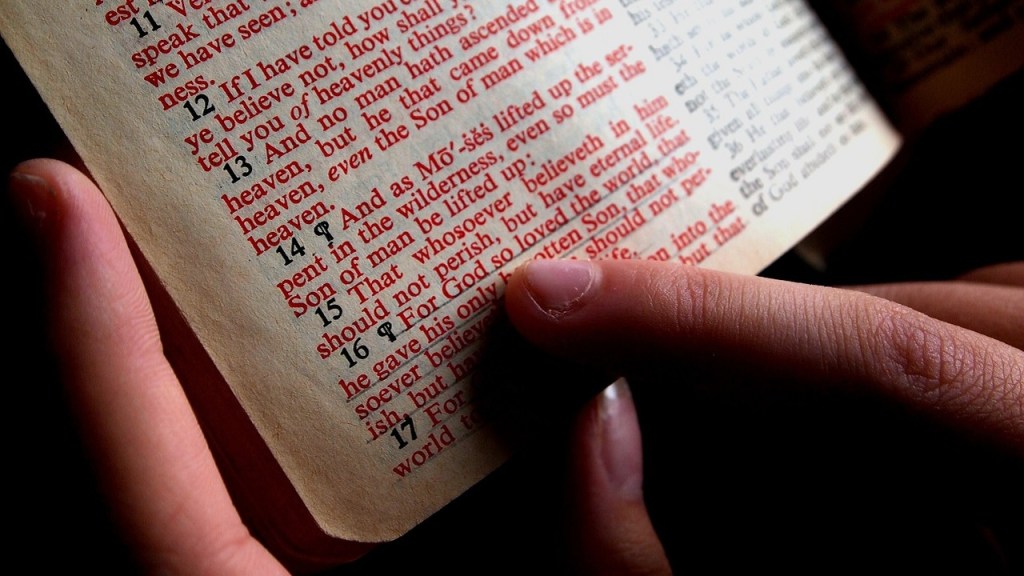 est
11
speak that
we have seen;
ness.
12 If I have told you
ye believe not, how shall
tell you of heavenly things?
13 And no man hath ascended
heaven, but he that came down from
heaven, even the Son of man which is in
heaven.
14 ¶ And as Mō′-s̆ĕs̆ lifted up the ser-
pent in the wilderness, even so must the
Son of man be lifted up:
15 That whosoever believeth in him
should not perish, but have eternal life.
16 ¶ For God so loved the world, that
he gave his only otten Son, that who-
soever believe should not per-
ish, but ha life.
17 For into the
world to but that
eth the
not the
given all
36 He that
everlasting
the Son shall
of God abideth